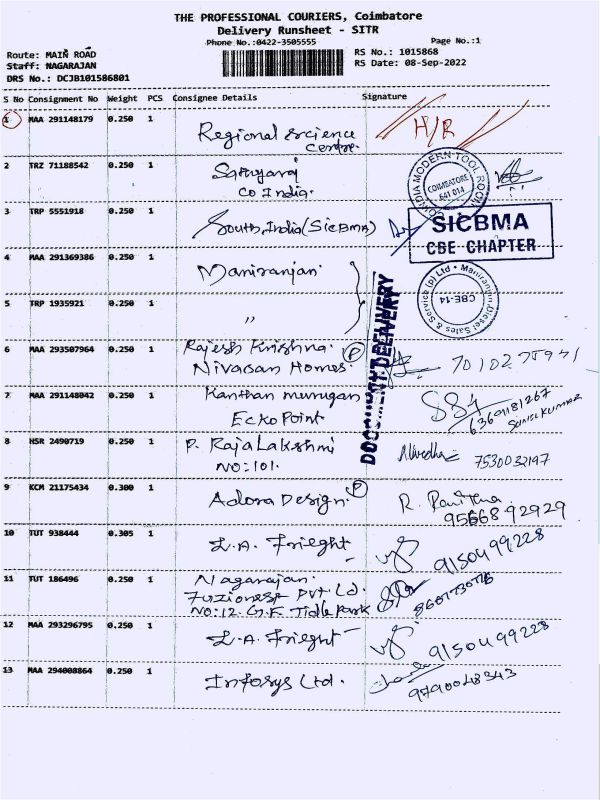 THE PROFESSIONAL COURIERS, Coimbatore
Delivery Runsheet - SITR
Phone No.:0422-3505555
Page No.:1
Route: MAIN ROAD
Staff: NAGARAJAN
DRS No.: DCJB101586801
RS No.: 1015868
RS Date: 08-Sep-2022
S No Consignment No Weight PCS Consignee Details Signature
1 MAA 291148179 0.250 1 Regional Science H/R
Centre.
2 TRZ 71188542 0.250 1 Sathyaraj
Co India.
COINDIA MODERN TOOL ROOM
COIMBATORE
641 014
3 TRP 5551918 0.250 1 South India (SICBMA)
SICBMA
CBE CHAPTER
4 MAA 291369386 0.250 1 Maniranjan.
Maniranjan Diesel Sales & Service (p) Ltd
CBE-14
5 TRP 1935921 0.250 1 "
DOCUMENT DELIVERY
6 MAA 293507964 0.250 1 Rajesh Krishna. P
Nivasan Homes.
7 MAA 291148042 0.250 1 Kanthan murugan
Ecko Point
SUNIL KUMAR
8 HSR 2490719 0.250 1 P. RajaLakshmi
NO:101. 7530032197
9 KCM 21175434 0.300 1 Adora Design. P R.
95668 92929
10 TUT 938444 0.305 1 L.A. Frieght 9150499228
11 TUT 186496 0.250 1 Nagarajan.
Fuzionest Pvt. Ld.
NO:12. G.F. Tidle Park
12 MAA 293296795 0.250 1 L.A. Frieght 9150499228
13 MAA 294008864 0.250 1 Infosys Ltd.
9790048343